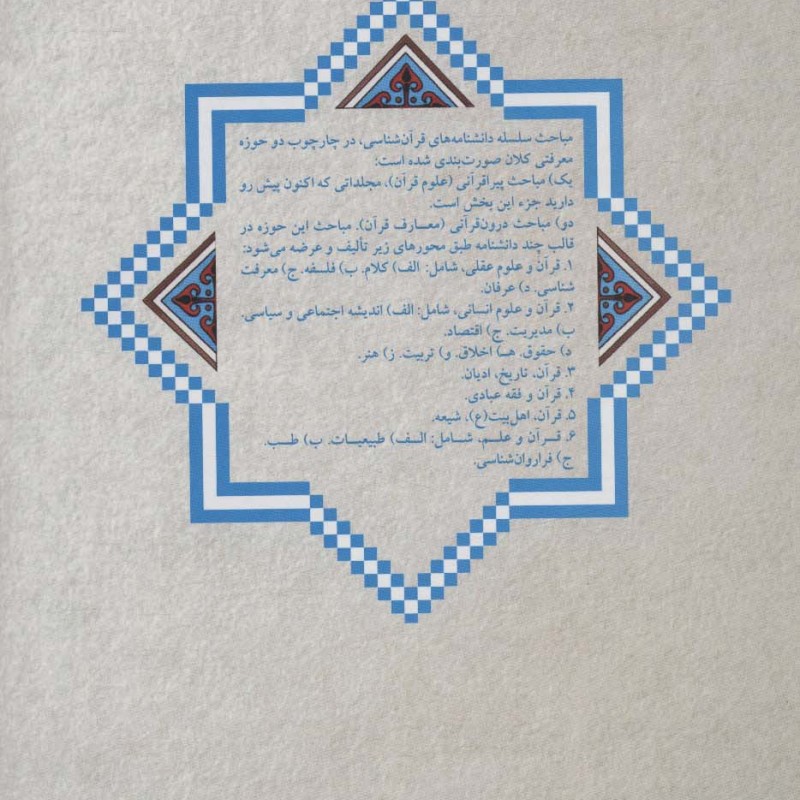 مباحث سلسله دانشنامه‌های قرآن‌شناسی، در چارچوب دو حوزه
معرفتی کلان صورت‌بندی شده است:
یک) مباحث پیراقرآنی (علوم قرآن)، مجلداتی که اکنون پیش رو
دارید جزء این بخش است.
دو) مباحث درون‌قرآنی (معـارف قرآن). مباحث این حوزه در
قالب چند دانشنامه طبق محورهای زیر تألیف و عرضه می‌شود:
۱. قرآن و علوم عقلی، شامل: الف) کلام. ب) فلسفه. ج) معرفت
شناسی. د) عرفان.
۲. قرآن و علوم انسانی، شامل: الف) اندیشه اجتماعی و سیاسی.
ب) مدیریت. ج) اقتصاد.
د) حقوق. هـ) اخلاق. و) تربیت. ز) هنر.
۳. قرآن، تاریخ، ادیان.
۴. قرآن و فقه عبادی.
۵. قرآن، اهل‌بیت(ع)، شیعه.
۶. قـرآن و علـم، شـامل: الـف) طبیعیـات. ب) طـب.
ج) فراروان‌شناسی.